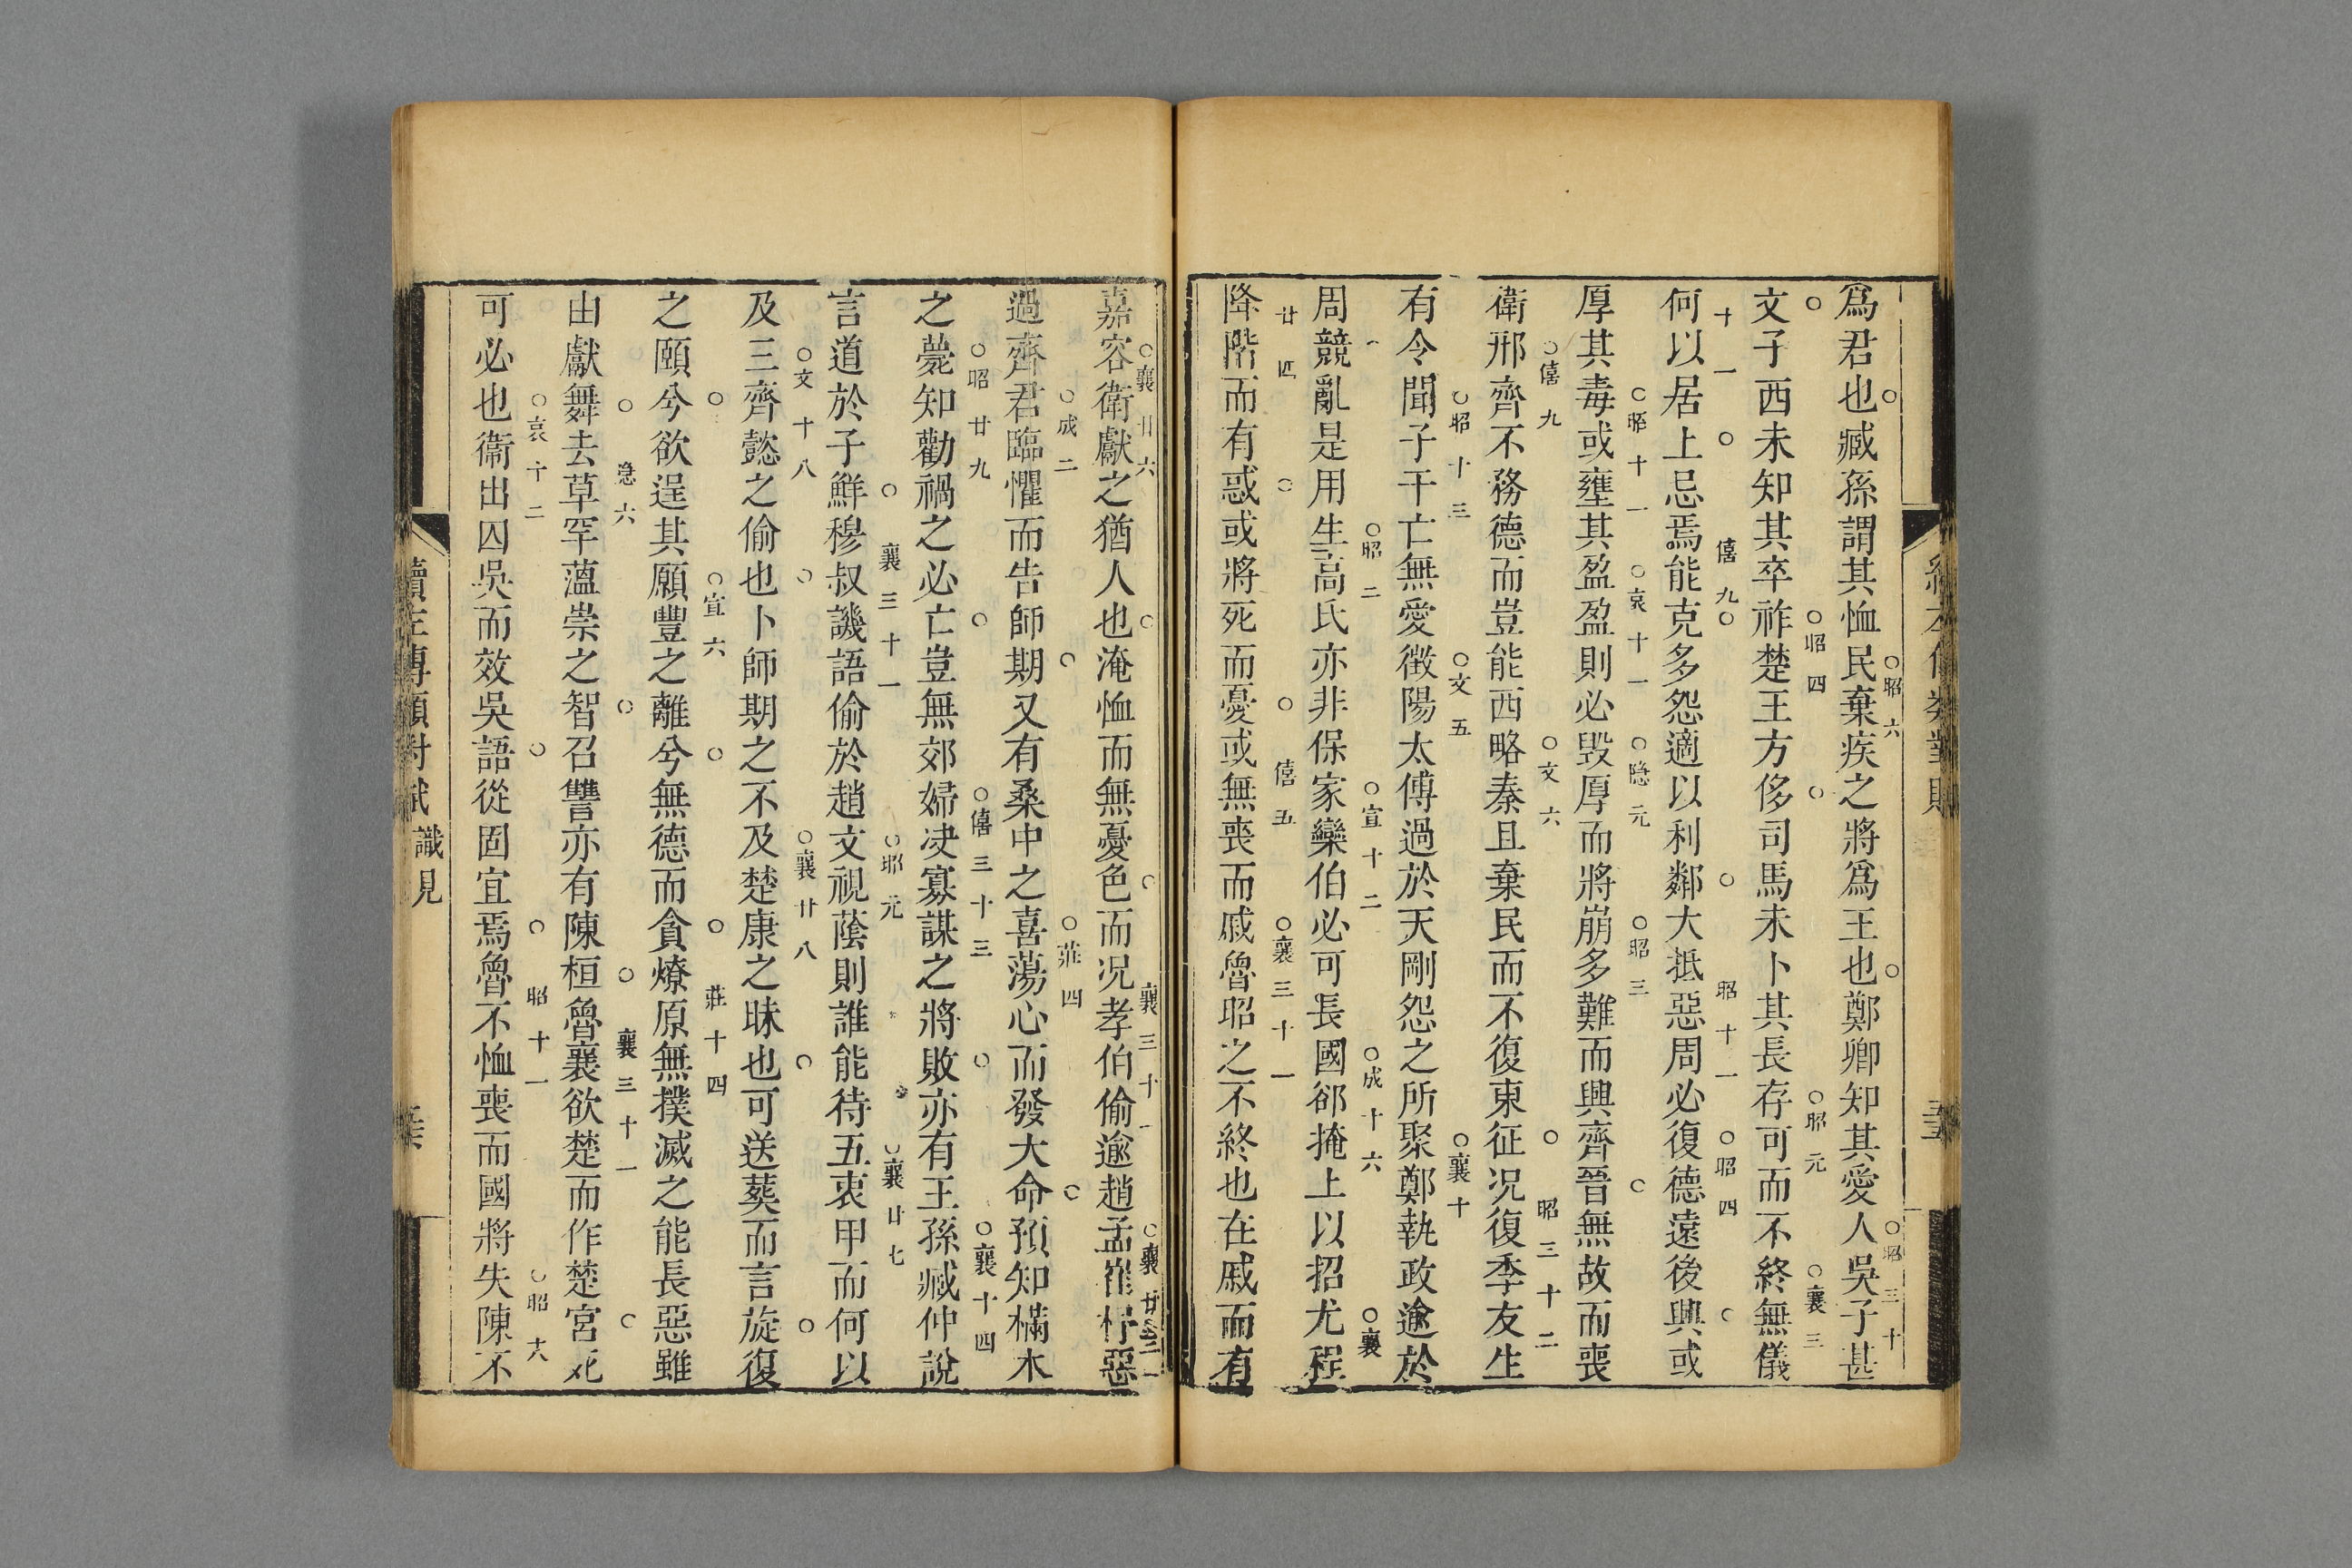 爲君也臧孫謂其恤民棄疾之將爲王也鄭卿知其愛人吳子甚
昭六
昭三十
文子西未知其卒祚楚王方侈司馬未卜其長存可而不終無儀
昭四
昭元
襄三
何以居上忌焉能克多怨適以利鄰大抵惡周必復德遠後興或
十一
僖九
昭十一
昭四
厚其毒或壅其盈盈則必毁厚而將崩多難而興齊晉無故而喪
昭十一
哀十一
隱元
昭三
衛邢齊不務德而豈能西略秦且棄民而不復東征况復季友生
僖九
文六
昭三十二
有令聞子干亡無愛徵陽太傅過於天剛怨之所聚鄭執政逾於
昭十三
文五
襄十
周競亂是用生高氏亦非保家欒伯必可長國郤掩上以招尤程
昭二
宣十二
成十六
襄
降階而有惑或將死而憂或無喪而戚魯昭之不終也在戚而有
廿四
僖五
襄三十一
嘉容衛獻之猶人也淹恤而無憂色而况孝伯偷逾趙孟崔杼惡
襄廿六
襄三十一
過齊君臨懼而告師期又有桑中之喜蕩心而發大命預知樠木
成二
莊四
之薨知勸禍之必亡豈無郊婦决寡謀之將敗亦有王孫臧仲說
昭廿九
僖三十三
襄十四
言道於子鮮穆叔譏語偷於趙文視蔭則誰能待五衷甲而何以
襄三十一
昭元
襄廿七
及三齊懿之偷也卜師期之不及楚康之昧也可送葬而言旋復
文十八
襄廿八
之頤兮欲逞其願豐之離兮無德而貪燎原無撲滅之能長惡雖
宣六
莊十四
由獻舞去草罕薀崇之智召讐亦有陳桓魯襄欲楚而作楚宮死
隱六
襄三十一
可必也衞出囚吳而效吳語從固宜焉魯不恤喪而國將失陳不
哀十二
昭十一
昭十八
續左傳類對賦
識見